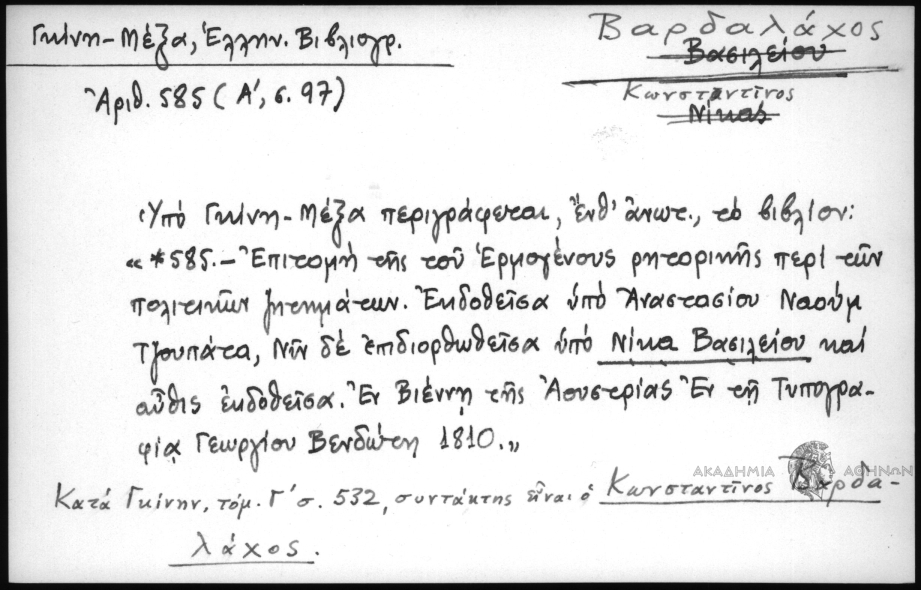 Γκίνη-Μέξα, Ἑλλην. Βιβλιογρ.
Ἀριθ. 585 (Α΄, σ. 97)
Βαρδαλάχος
Βασιλείου
Κωνσταντῖνος
Νίκας
Ὑπό Γκίνη-Μέξα περιγράφεται, ἔνθ' ἀνωτ., τό βιβλίον:
« *585.- Ἐπιτομή τῆς τοῦ Ἑρμογένους ρητορικῆς περί τῶν
πολιτικῶν ζητημάτων. Ἐκδοθεῖσα ὑπό Ἀναστασίου Ναούμ
Τζουπάτα, Νῦν δέ ἐπιδιορθωθεῖσα ὑπό Νίκα Βασιλείου καί
αὖθις ἐκδοθεῖσα. Ἐν Βιέννῃ τῆς Ἀουστρίας Ἐν τῇ Τυπογρα-
φίᾳ Γεωργίου Βενδώτη 1810.»
ΑΚΑΔΗΜΙΑ ΑΘΗΝΩΝ
Κατά Γκίνην, τόμ. Γ΄ σ. 532, συντάκτης εἶναι ὁ Κωνσταντῖνος Βαρδα-
λάχος.